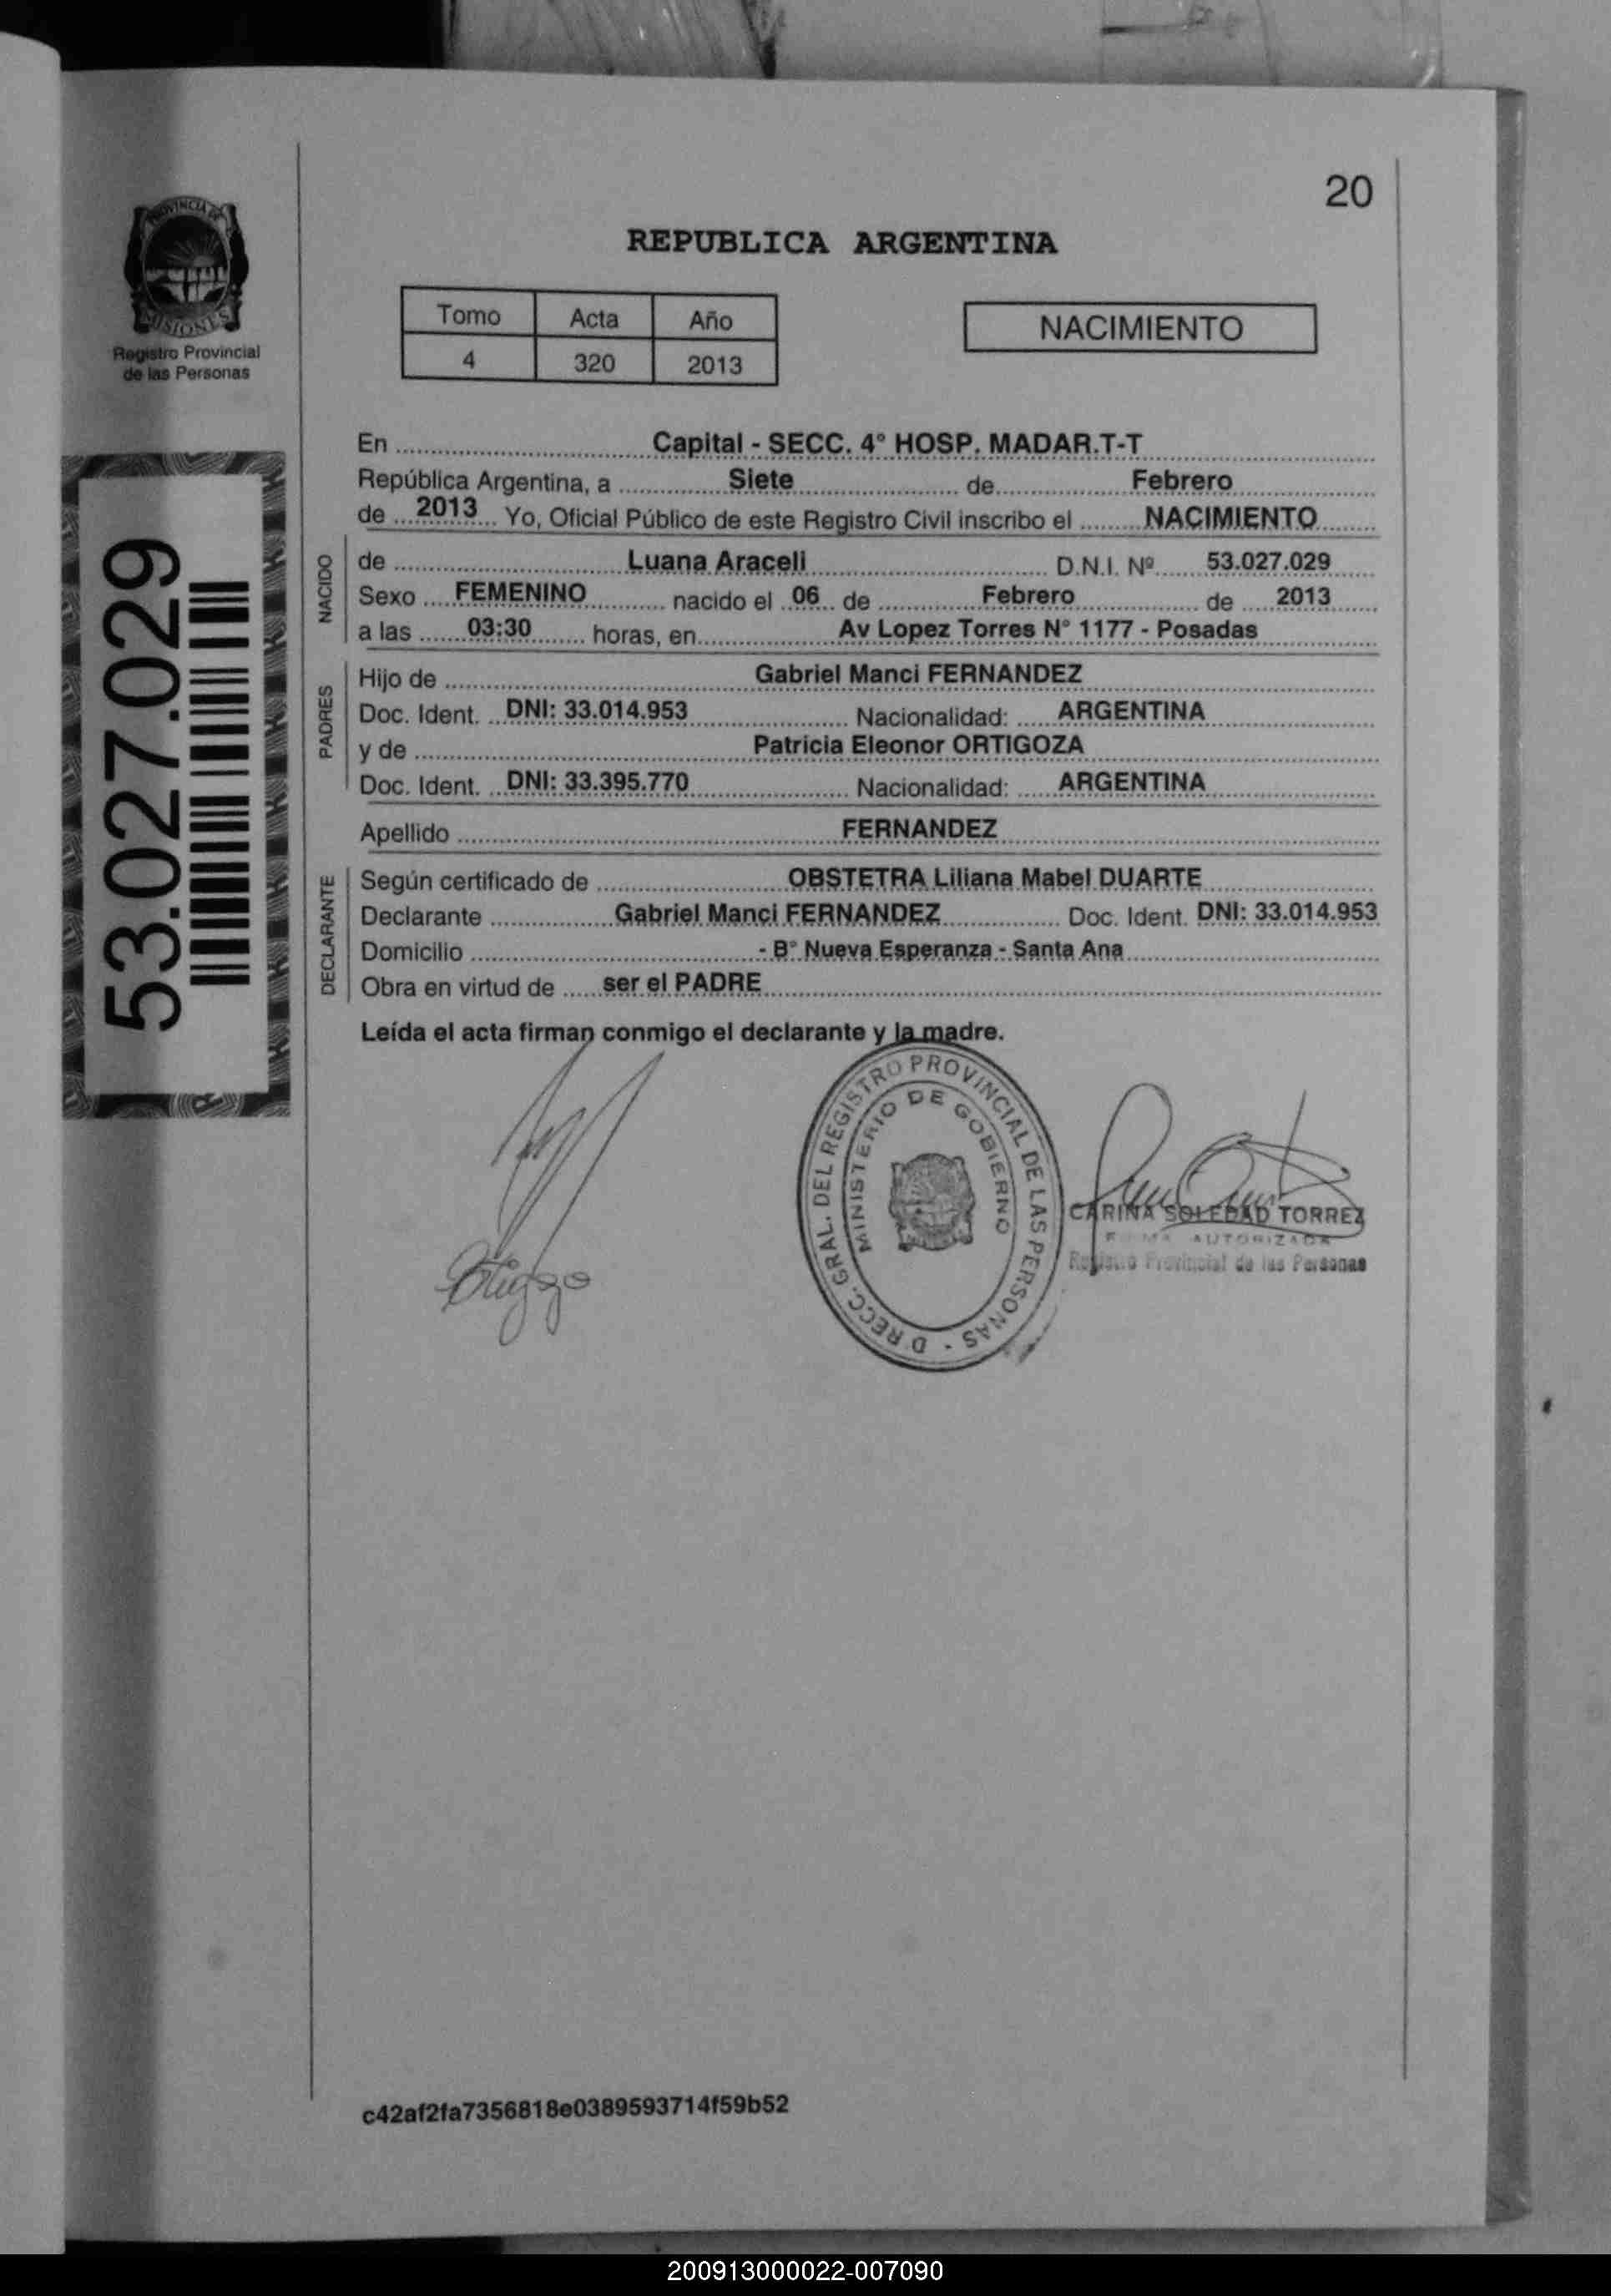 20
REPUBLICA ARGENTINA
PROVINCIA DE
MISIONES
Registro Provincial
de las Personas
Tomo Acta Año
4 320 2013
NACIMIENTO
53.027.029
En Capital - SECC. 4° HOSP. MADAR.T-T
República Argentina, a Siete de Febrero
de 2013 Yo, Oficial Público de este Registro Civil inscribo el NACIMIENTO
NACIDO
de Luana Araceli D.N.I. Nº 53.027.029
Sexo FEMENINO nacido el 06 de Febrero de 2013
a las 03:30 horas, en Av Lopez Torres N° 1177 - Posadas
PADRES
Hijo de Gabriel Manci FERNANDEZ
Doc. Ident. DNI: 33.014.953 Nacionalidad: ARGENTINA
y de Patricia Eleonor ORTIGOZA
Doc. Ident. DNI: 33.395.770 Nacionalidad: ARGENTINA
Apellido FERNANDEZ
DECLARANTE
Según certificado de OBSTETRA Liliana Mabel DUARTE
Declarante Gabriel Manci FERNANDEZ Doc. Ident. DNI: 33.014.953
Domicilio - B° Nueva Esperanza - Santa Ana
Obra en virtud de ser el PADRE
Leída el acta firman conmigo el declarante y la madre.
DRECC. GRAL. DEL REGISTRO PROVINCIAL DE LAS PERSONAS -
MINISTERIO DE GOBIERNO
CARINA SOLEDAD TORREZ
FIRMA AUTORIZADA
Registro Provincial de las Personas
c42af2fa7356818e0389593714f59b52
200913000022-007090